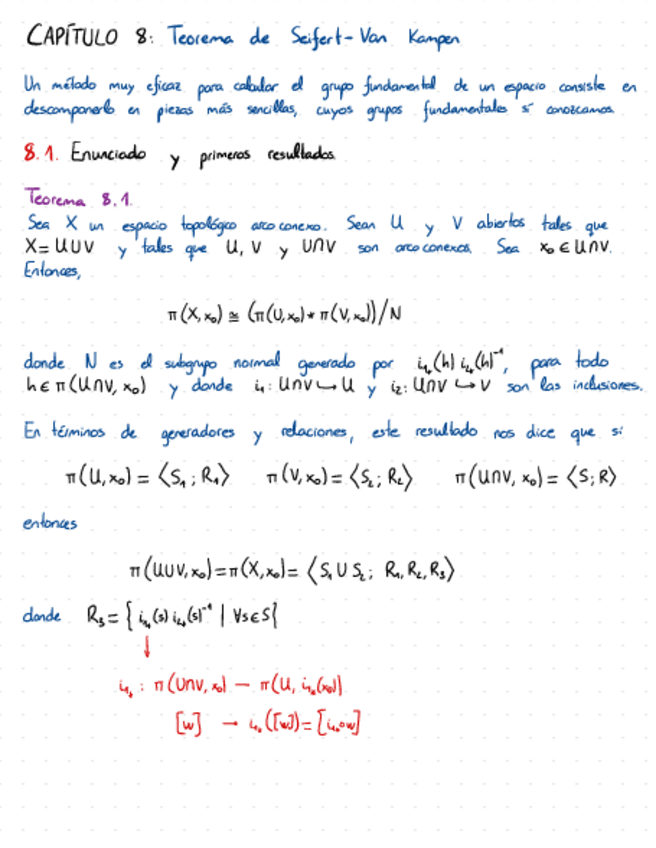 CAPÍTULO 8: Teorema de Seifert-Van Kampen
Un método muy eficaz para calcular el grupo fundamental de un espacio consiste en
descomponerlo en piezas más sencillas, cuyos grupos fundamentales sí conozcamos.
8.1. Enunciado y primeros resultados
Teorema 8.1.
Sea X un espacio topológico arcoconexo. Sean U y V abiertos tales que
X=U∪V y tales que U, V y U∩V son arcoconexos. Sea x₀ ∈ U∩V.
Entonces,
π(X,x₀) ≅ (π(U,x₀) * π(V,x₀))/N
donde N es el subgrupo normal generado por i₁*(h) i₂*(h)⁻¹, para todo
h ∈ π(U∩V, x₀) y donde i₁: U∩V ↪ U y i₂: U∩V ↪ V son las inclusiones.
En términos de generadores y relaciones, este resultado nos dice que si
π(U,x₀) = ⟨S₁; R₁⟩ π(V,x₀) = ⟨S₂; R₂⟩ π(U∩V, x₀) = ⟨S; R⟩
entonces
π(U∪V,x₀) = π(X,x₀) = ⟨S₁ ∪ S₂; R₁, R₂, R₃⟩
donde R₃ = { i₁*(s) i₂*(s)⁻¹ | ∀s∈S}
↓
i₁* : π(U∩V, x₀) – π(U, i₁*(x₀))
[w] → i₁*([w]) = [i₁*∘w]